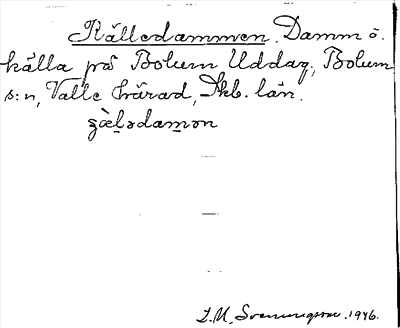 Källedammen. Damm o.
källa på Bolum Uddag, Bolum
s:n, Valle härad, Skb. län.
L.M. Svenungsson. 1946.